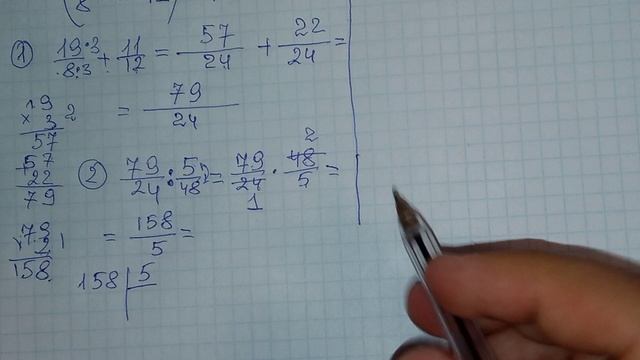 (8 12)
① 19·3/8·3 + 11/12 = 57/24 + 22/24 =
= 79/24
19
× 3
57
57
+ 22
79
② 79/24 : 5/48 = 79/24 · 48/5 =
2
1
79
× 2
158
= 158/5 =
158 | 5